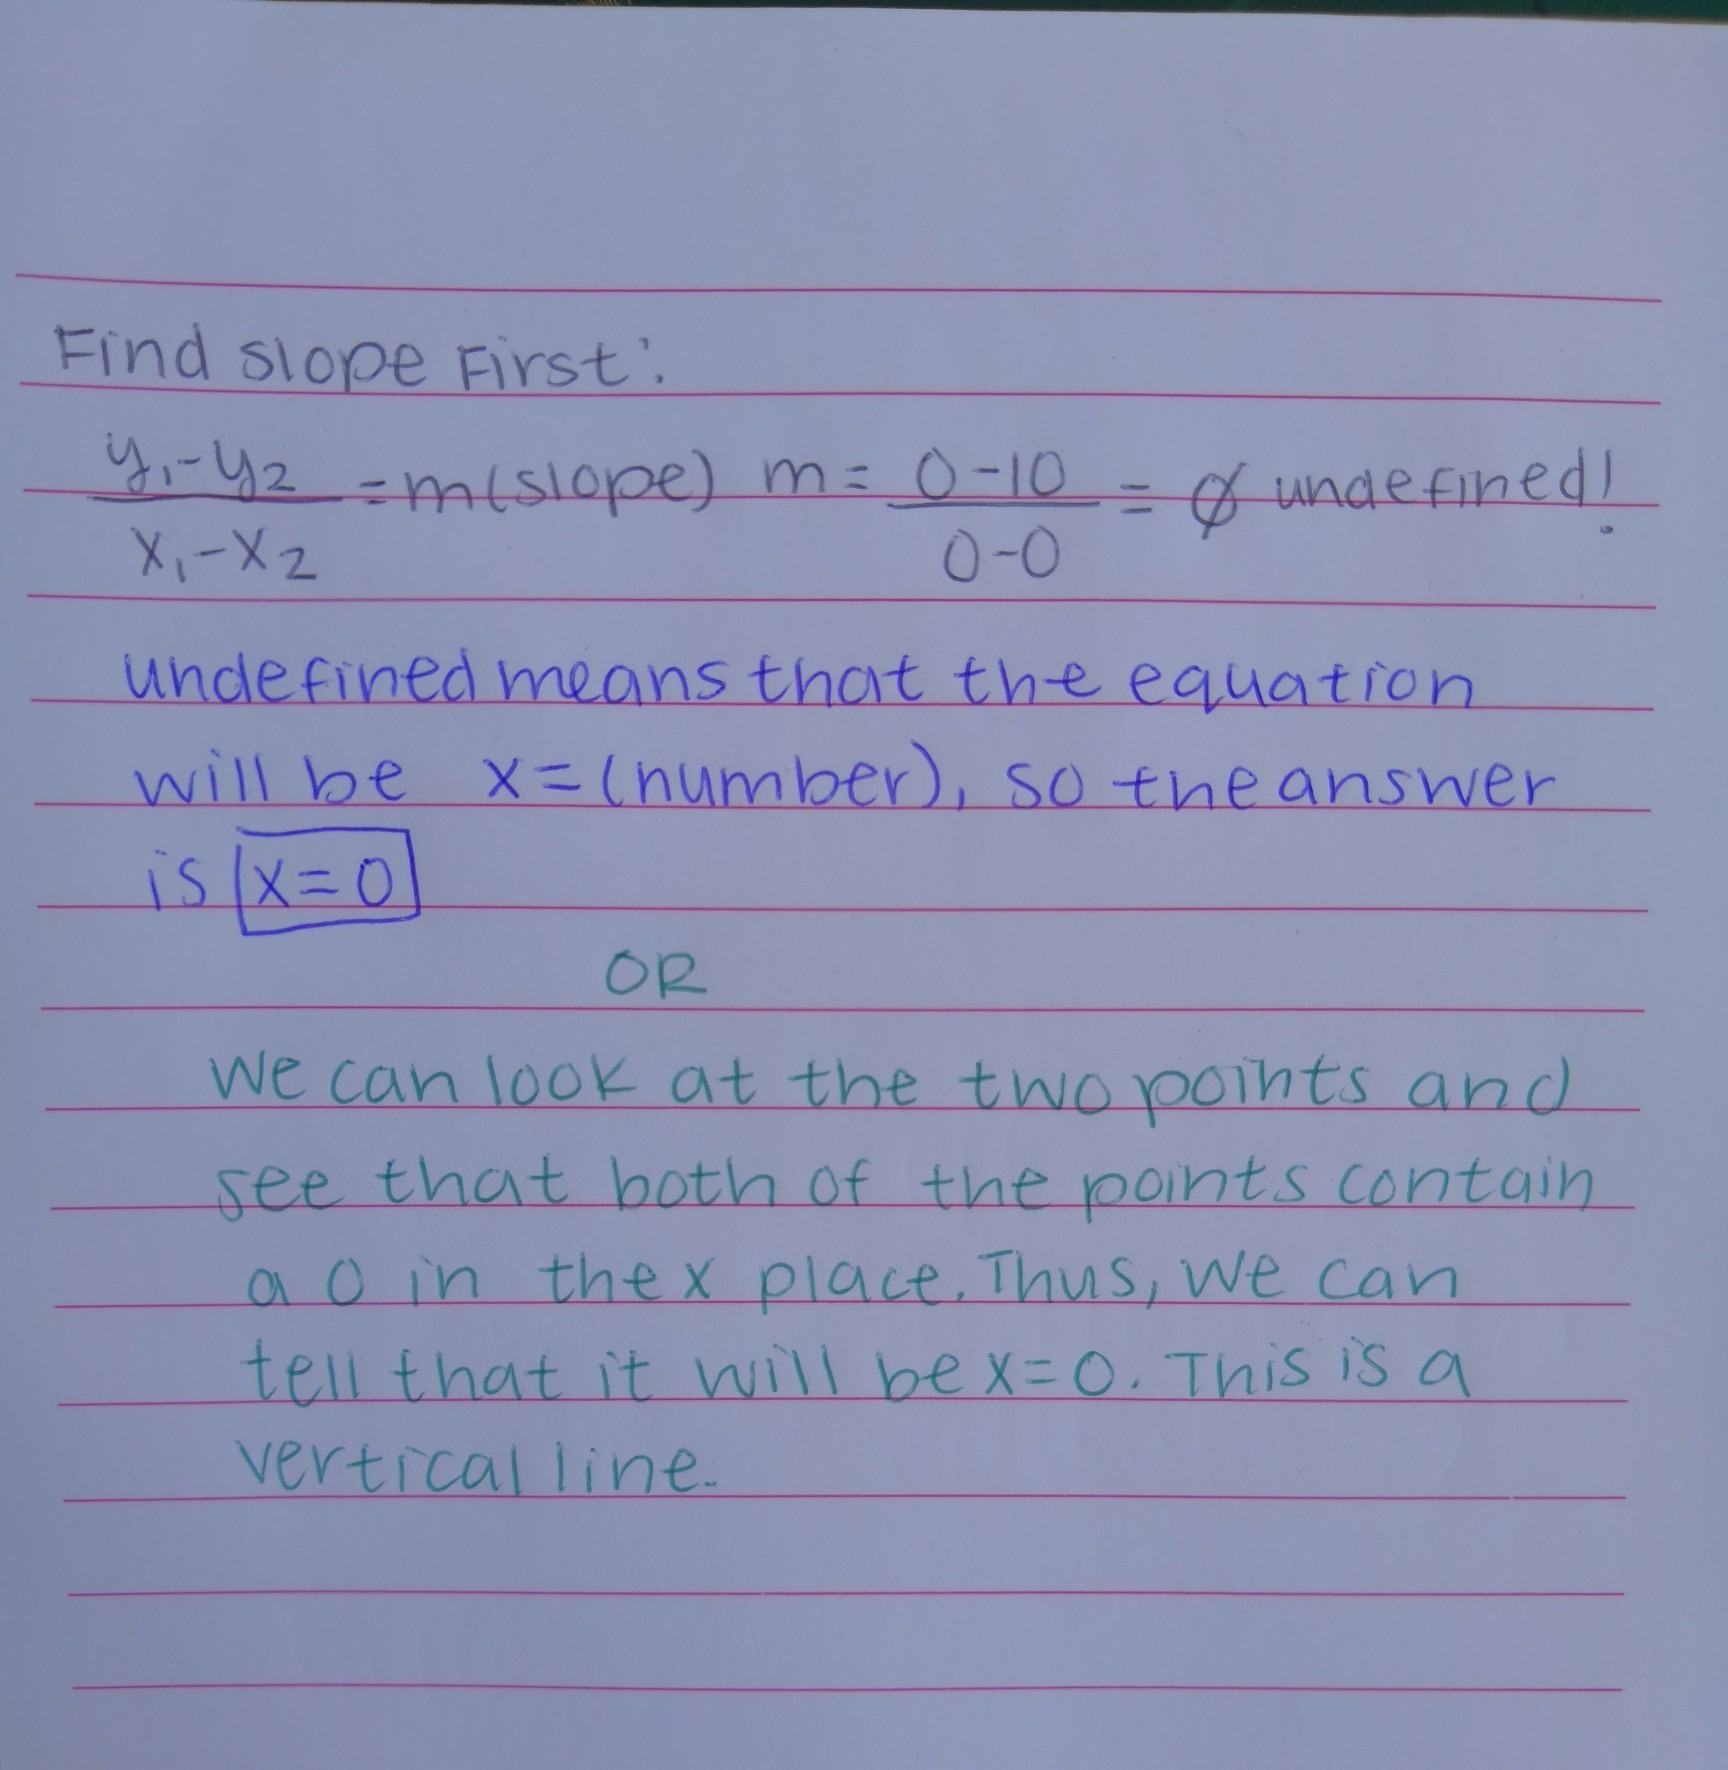 Find slope First:
y₁-y₂ = m(slope) m = 0-10 = ∅ undefined!
x₁-x₂ 0-0
undefined means that the equation
will be x=(number), so the answer
is x=0
OR
we can look at the two points and
see that both of the points contain
a 0 in the x place. Thus, we can
tell that it will be x=0. This is a
vertical line.